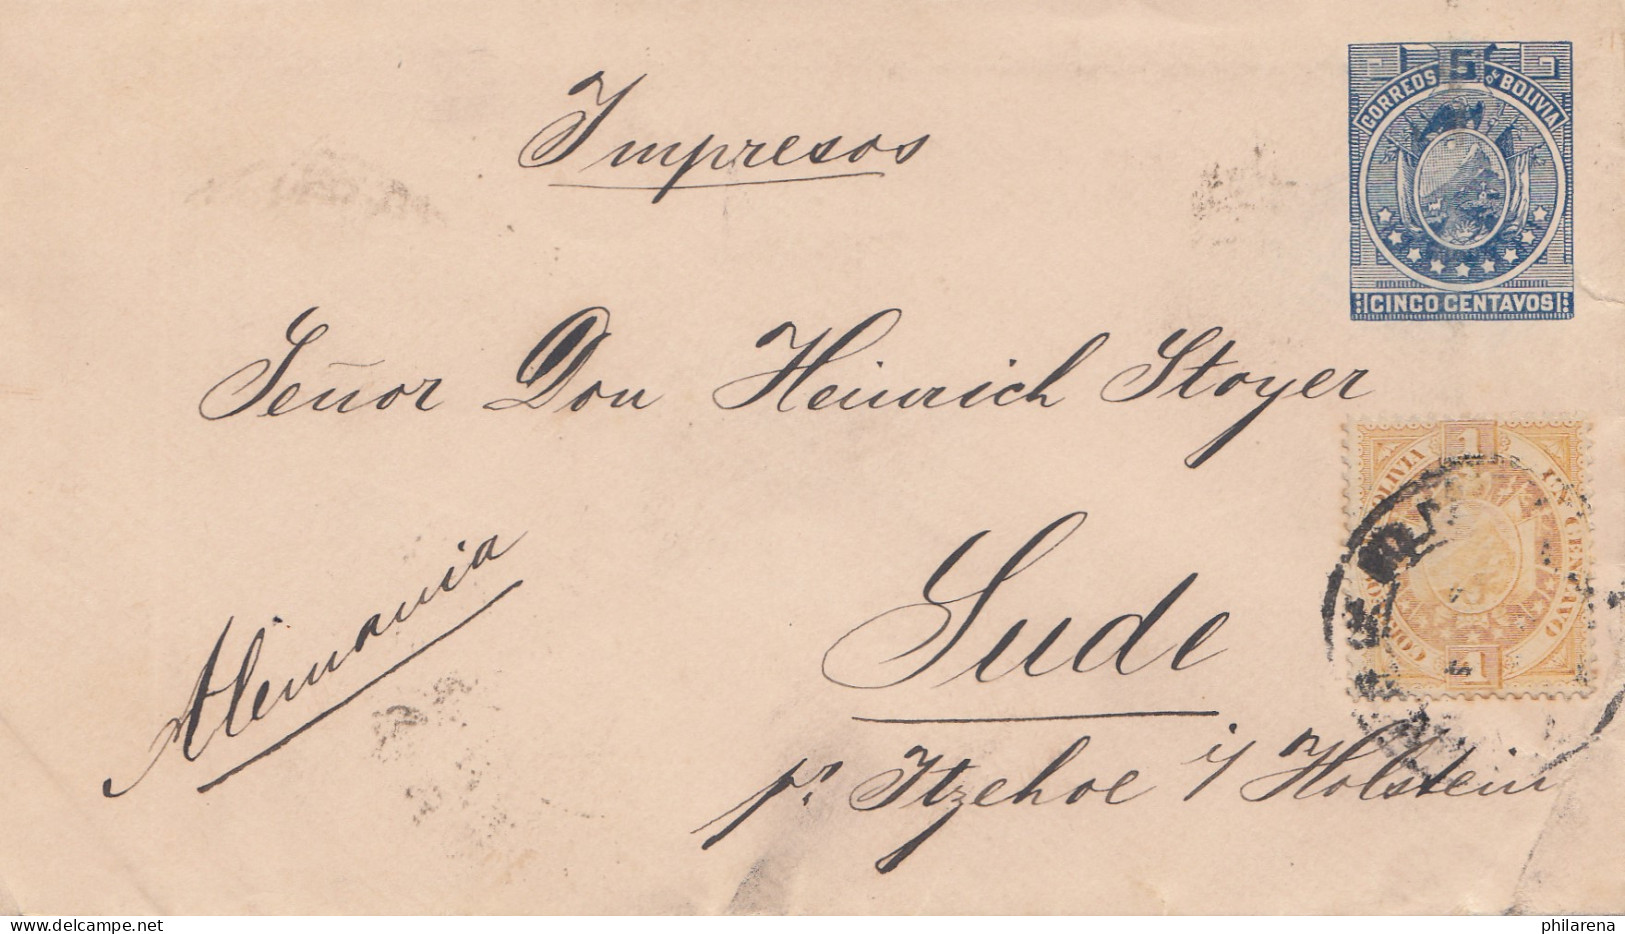 Impresos
5
CORREOS DE BOLIVIA
CINCO CENTAVOS
Señor Don Heinrich Stoyer
1
BOLIVIA
UN CENTAVO
1
Alemania
Sude
pr. Itzehoe i/ Holstein
philarena